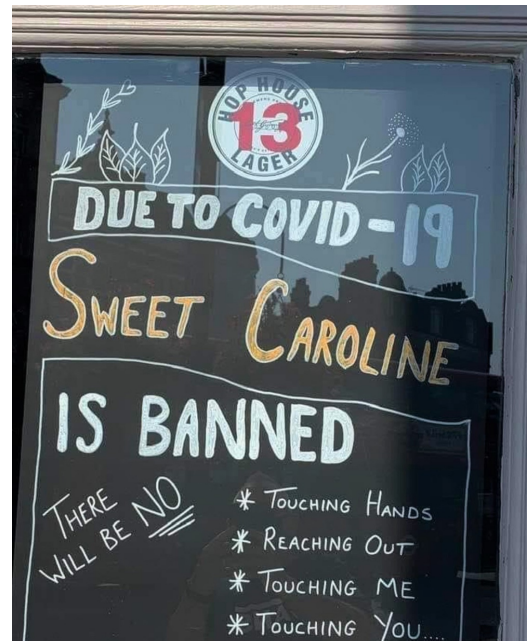 HOP HOUSE
13
LAGER
DUE TO COVID-19
SWEET CAROLINE
IS BANNED
THERE
WILL BE NO
* TOUCHING HANDS
* REACHING OUT
* TOUCHING ME
* TOUCHING YOU....